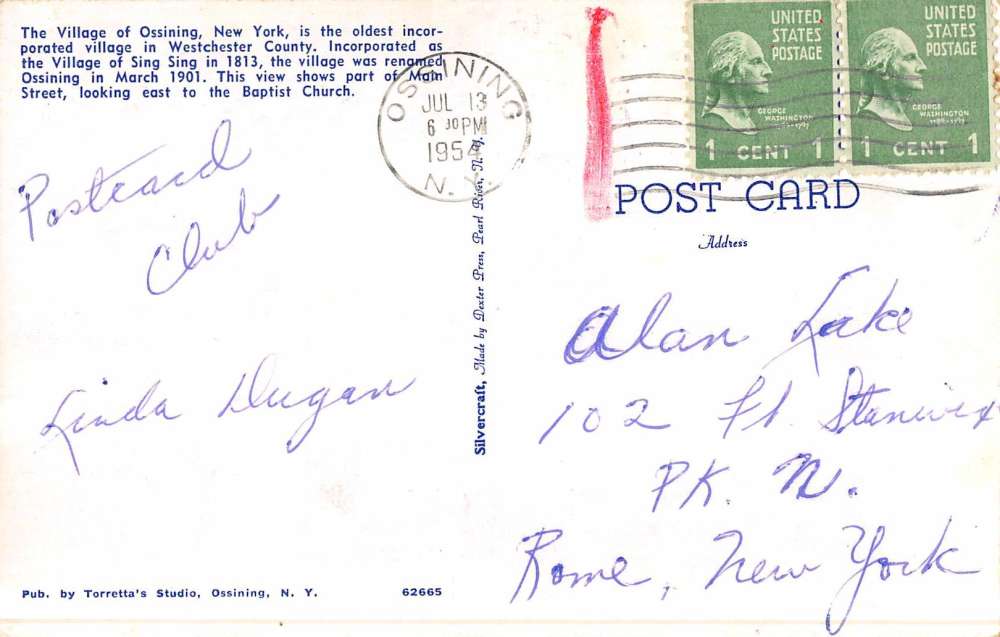 The Village of Ossining, New York, is the oldest incor-
porated village in Westchester County. Incorporated as
the Village of Sing Sing in 1813, the village was renamed
Ossining in March 1901. This view shows part of Main
Street, looking east to the Baptist Church.
OSSINING
JUL 13
6 30 PM
1954
N. Y.
UNITED
STATES
POSTAGE
GEORGE
WASHINGTON
1 CENT 1
UNITED
STATES
POSTAGE
GEORGE
WASHINGTON
1789-1797
1 CENT 1
Postcard
Club
Linda Dugan
Silvercraft, Made by Dexter Press, Pearl River, N. Y.
POST CARD
Address
Alan Lake
102 Ft. Stanwix
PK. N.
Rome, New York
Pub. by Torretta's Studio, Ossining, N. Y.
62665